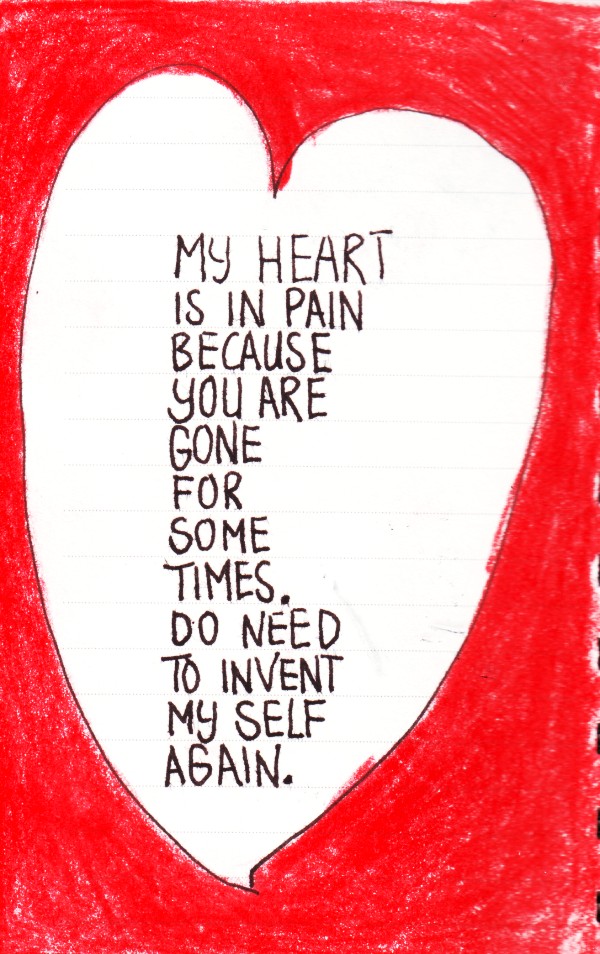 MY HEART
IS IN PAIN
BECAUSE
YOU ARE
GONE
FOR
SOME
TIMES.
DO NEED
TO INVENT
MY SELF
AGAIN.